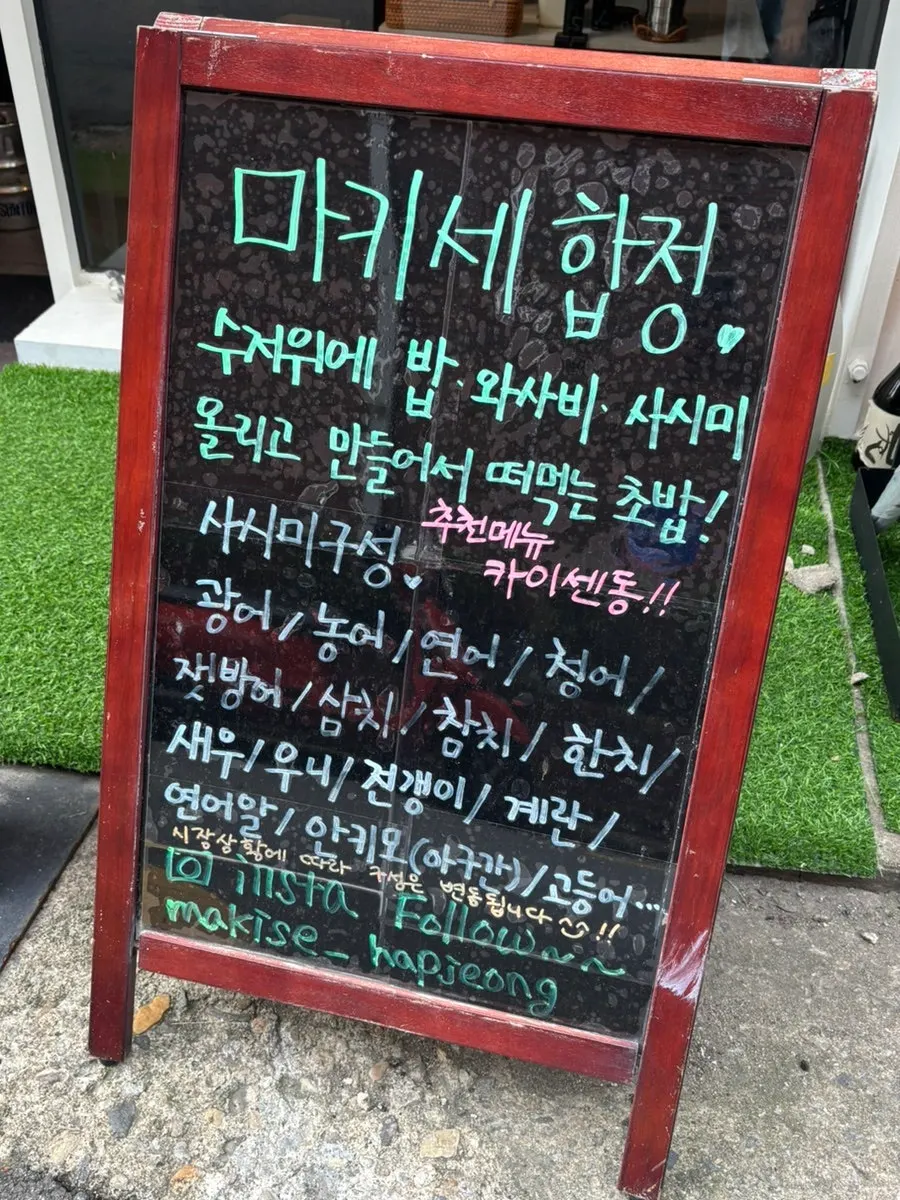 마키세 합정
수저위에 밥. 와사비. 사시미
올리고 만들어서 떠먹는 초밥!
사시미구성 추천메뉴
카이센동!!
광어/농어/연어/청어/
잿방어/삼치/참치/한치/
새우/우니/전갱이/계란/
연어알/안키모(아구간)/고등어...
시장상황에 따라 구성은 변동됩니다!!
insta Follow~~
makise_hapjeong